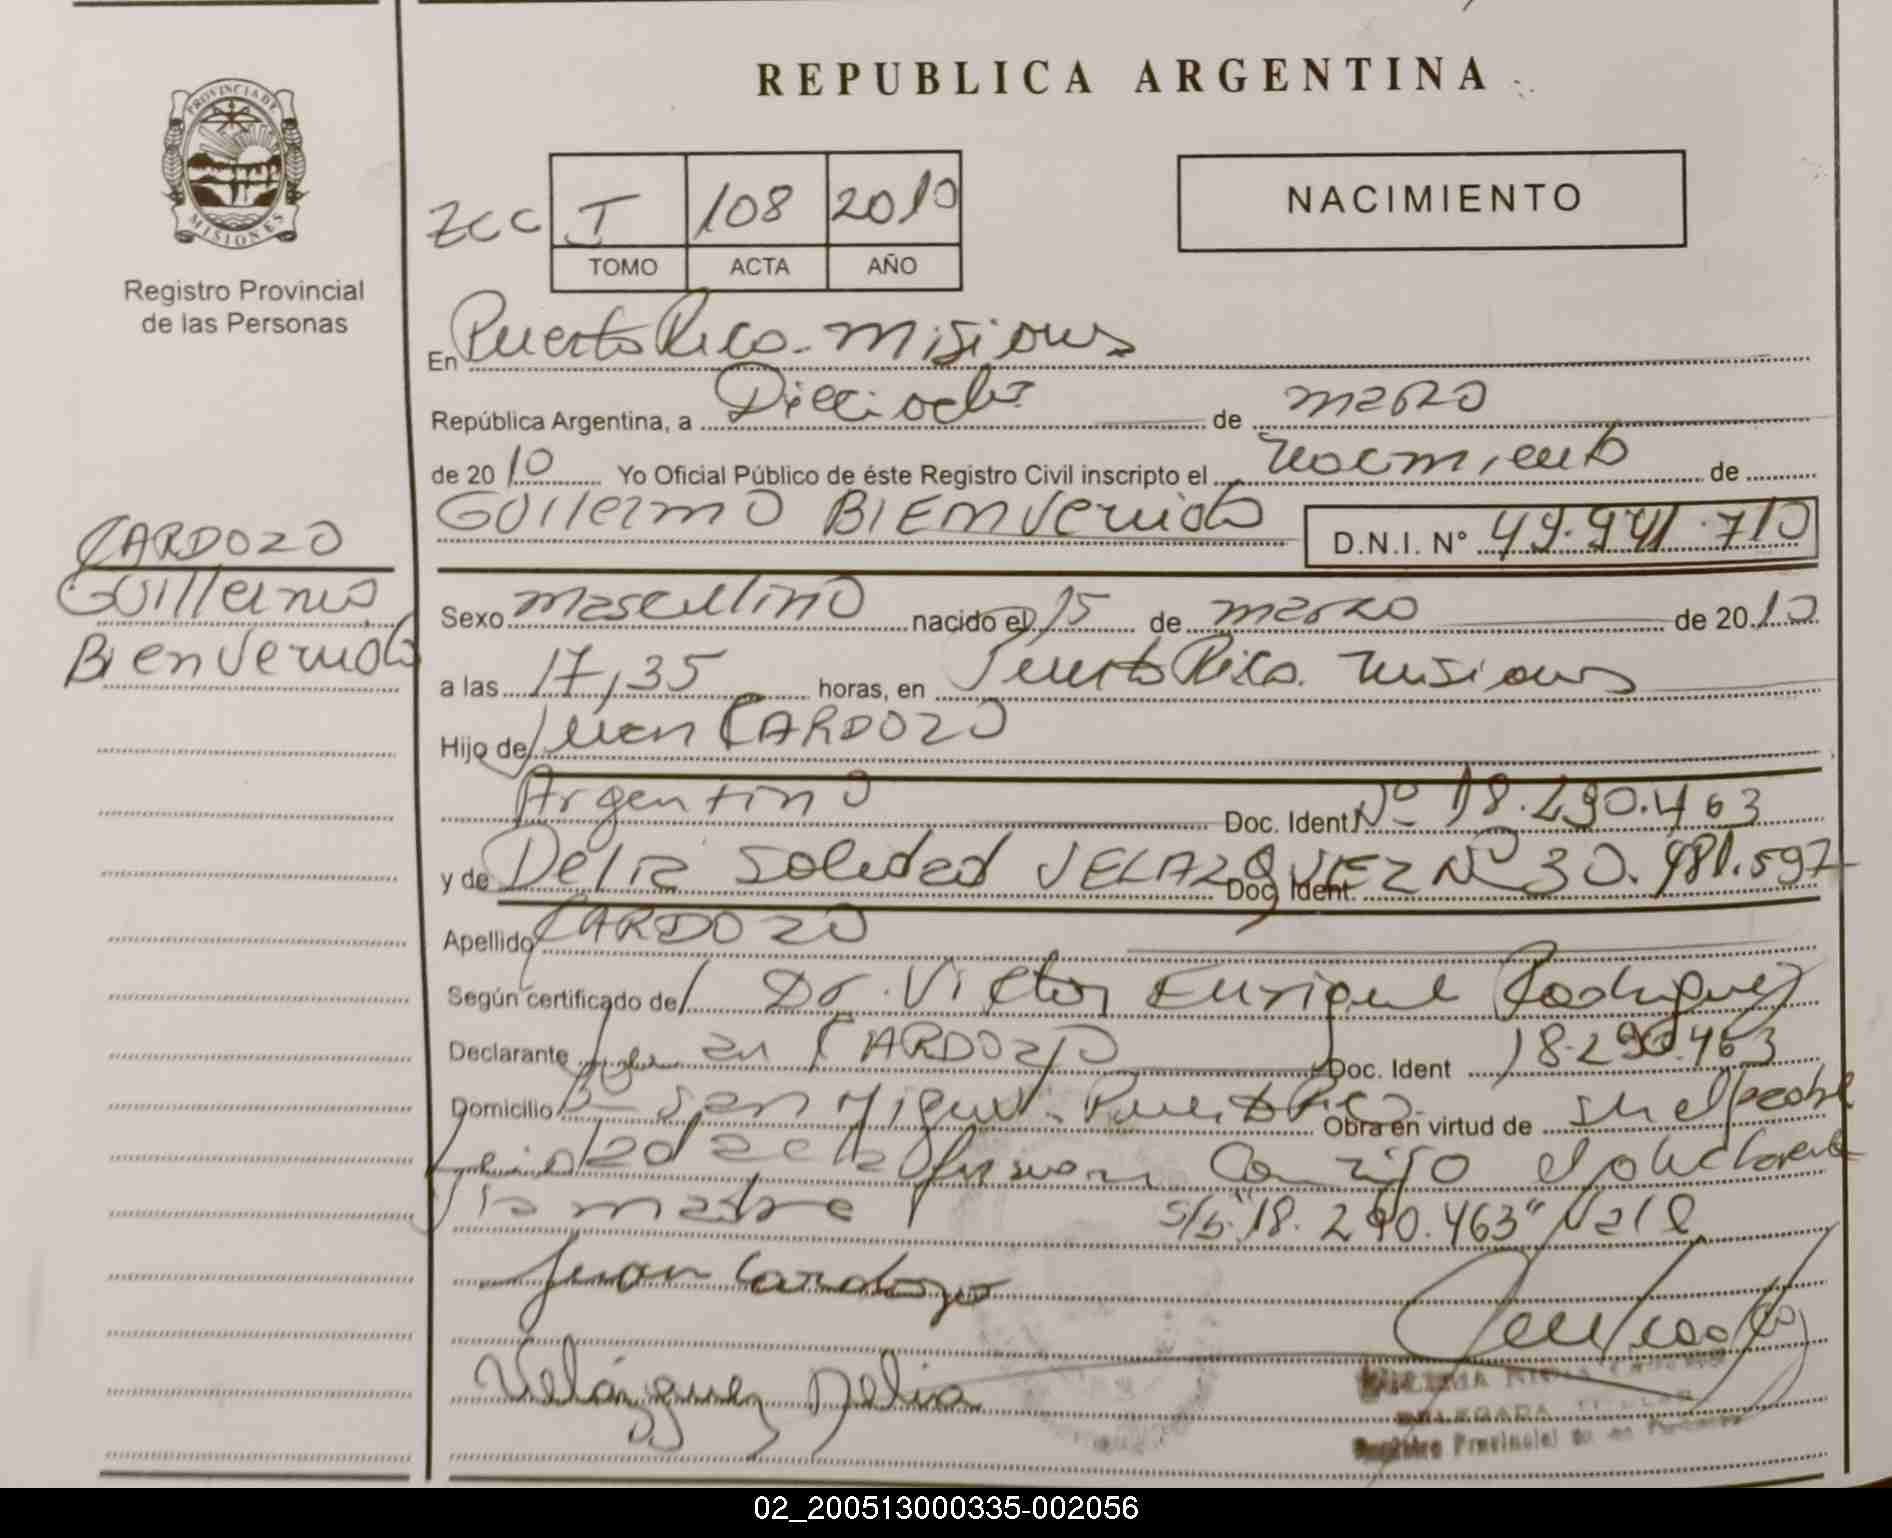 REPUBLICA ARGENTINA
PROVINCIA DE
MISIONES
Registro Provincial
de las Personas
NACIMIENTO
ZCC I 108 2010
TOMO ACTA AÑO
En Puerto Rico - Misiones
República Argentina, a Dieciocho de marzo
de 2010 Yo Oficial Público de éste Registro Civil inscripto el nacimiento de
Guillermo BIENVenido D.N.I. Nº 49.941.710
CARDOZO
Guillermo
Bienvenido
Sexo masculino nacido el 15 de marzo de 2010
a las 17,35 horas, en Puerto Rico. misiones
Hijo de Juan CARDOZO
Argentino Doc. Ident Nº 18.290.463
y de Delia Soledad VELAZQUEZ Doc. Ident. Nº 30.981.597
Apellido CARDOZO
Según certificado del Dr. Victor Enrique Rodriguez
Declarante Juan CARDOZO Doc. Ident 18.290.463
Domicilio Bº San Miguel - Puerto Rico - Obra en virtud de su el padre
Leida el acta firman conmigo el declarante
y la madre s/b "18.290.463" Vale
Juan Cardozo
Velázquez Delia
DELEGADA TITULAR
Registro Provincial de las Personas
02_200513000335-002056